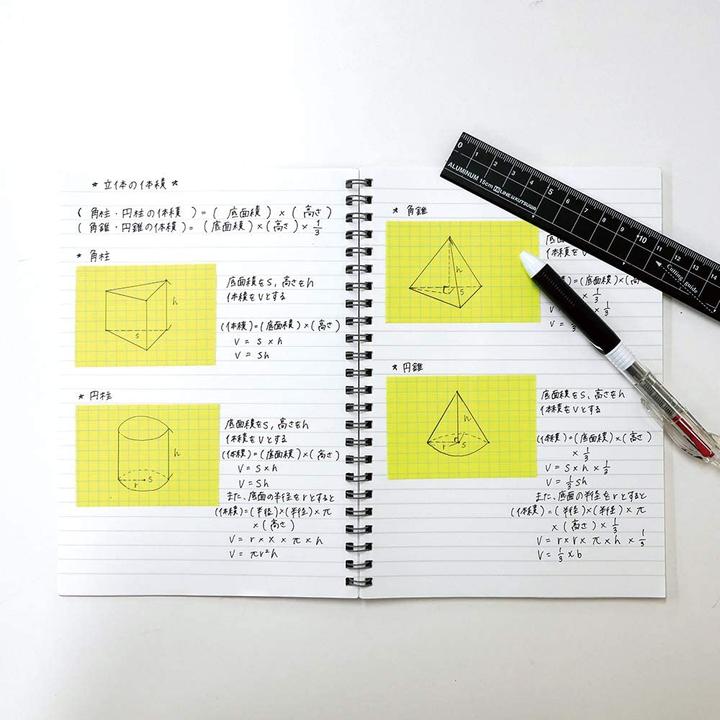 * 立体の体積 *
( 角柱・円柱の体積 ) = ( 底面積 ) × ( 高さ )
( 角錐・円錐の体積 ) = ( 底面積 ) × ( 高さ ) × 1/3
* 角柱
h
S
底面積をS, 高さをh
体積をVとする
(体積) = (底面積) × (高さ)
V = S × h
V = Sh
* 円柱
h
r S
底面積をS, 高さをh
体積をVとする
(体積) = (底面積) × (高さ)
V = S × h
V = Sh
また、底面の半径をrとすると
(体積) = (半径) × (半径) × π
× (高さ)
V = r × × × π × h
V = πr²h
* 角錐
h
S
底
体積を
= (底面積) × (高さ)
× 1/3
V =
V = 1/3
* 円錐
h
r S
底面積をS, 高さをh
体積をVとする
(体積) = (底面積) × (高さ)
× 1/3
V = S × h × 1/3
V = 1/3 Sh
また、底面の半径をrとすると
(体積) = (半径) × (半径) × π
× (高さ) × 1/3
V = r × r × π × h × 1/3
V = 1/3 × b
0 1 2 3 4 5 6 7 8 9 10 11 12 13 14
ALUMINUM 15cm
Cutting guide